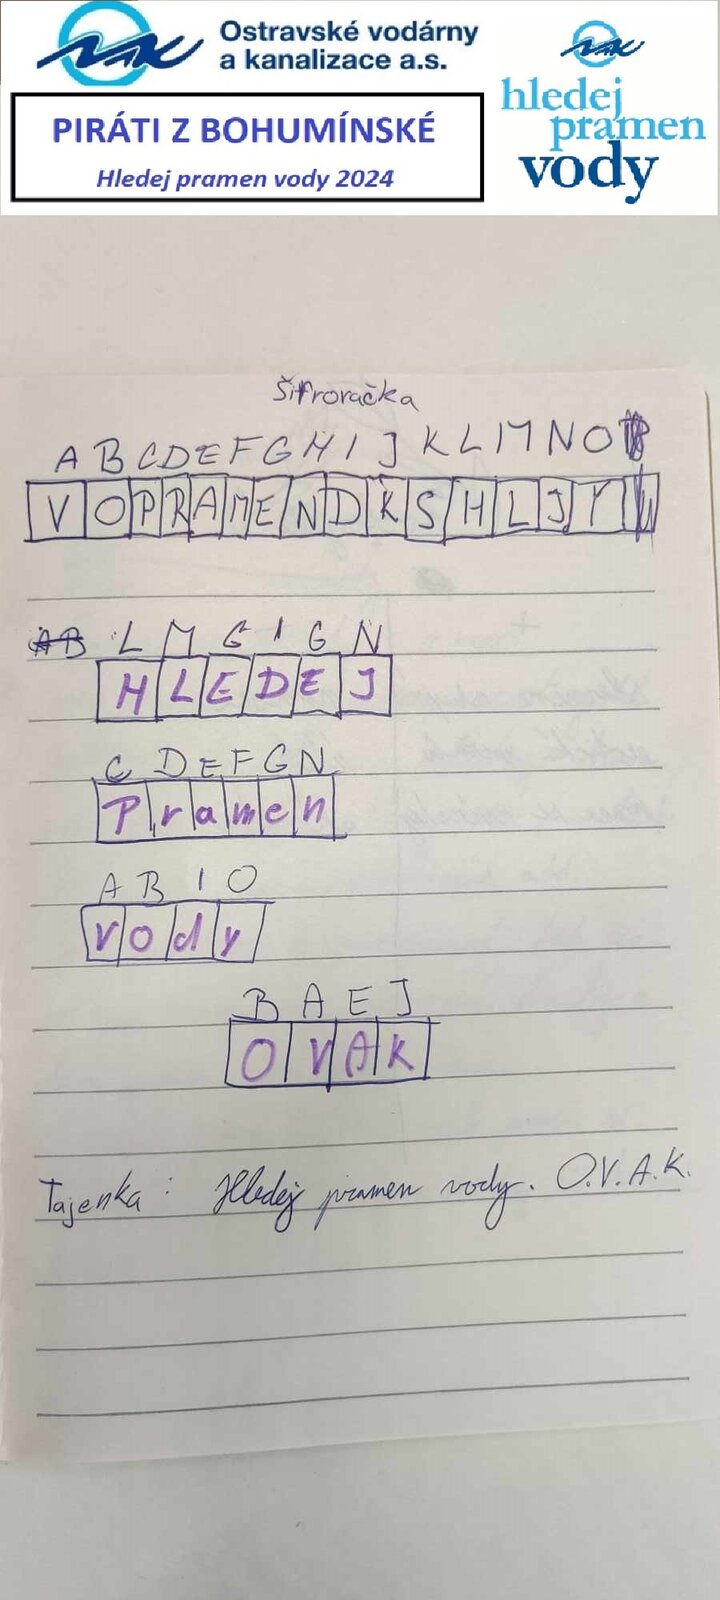 Ostravské vodárny
a kanalizace a.s.
PIRÁTI Z BOHUMÍNSKÉ
Hledej pramen vody 2024
hledej
pramen
vody
Šifrovačka
A B C D E F G H I J K L M N O
V O P R A M E N D K S H L J Y
AB L M G I G N
H L E D E J
C D E F G N
P r a m e n
A B I O
v o d y
B A E J
O V A K
Tajenka : Hledej pramen vody. O.V.A.K.